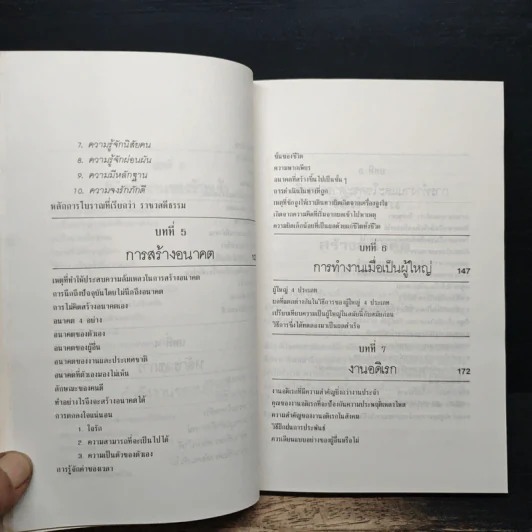 7. ความรู้จักนิสัยคน
8. ความรู้จักผ่อนผัน
9. ความมีหลักฐาน
10. ความจงรักภักดี
หลักการโบราณที่เรียกว่า ราชวสดีธรรม
บทที่ 5
การสร้างอนาคต
เหตุที่ทำให้ประสบความล้มเหลวในการสร้างอนาคต
การนึกถึงปัจจุบันโดยไม่นึกถึงอนาคต
การไม่คิดสร้างอนาคตเอง
อนาคต 4 อย่าง
อนาคตของตัวเอง
อนาคตของผู้อื่น
อนาคตของงานและประเทศชาติ
อนาคตที่ตัวเองมองไม่เห็น
ลักษณะของคนดี
ทำอย่างไรจึงจะสร้างอนาคตได้
การทดลองใจแน่นอน
1. ใจรัก
2. ความสามารถที่จะเป็นไปได้
3. ความเป็นตัวของตัวเอง
การรู้จักค่าของเวลา
ขั้นของชีวิต
ความพากเพียร
อนาคตที่สร้างขึ้นไปเป็นชั้นๆ
การดำเนินในทางที่ถูก
บทที่ 6
การทำงานเมื่อเป็นผู้ใหญ่ 147
ผู้ใหญ่ 4 ประเภท
บทที่ 7
งานอดิเรก 172
งานอดิเรกที่มีความสำคัญยิ่งกว่างานประจำ
คุณของงานอดิเรกที่จะป้องกันความประพฤติเหลวไหล
ความสำคัญของงานอดิเรกในสังคม
วิธีฝึกฝนการประพันธ์
ควรเลียนแบบอย่างของผู้อื่นหรือไม่